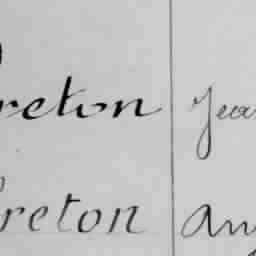 reton Jea
reton Ang